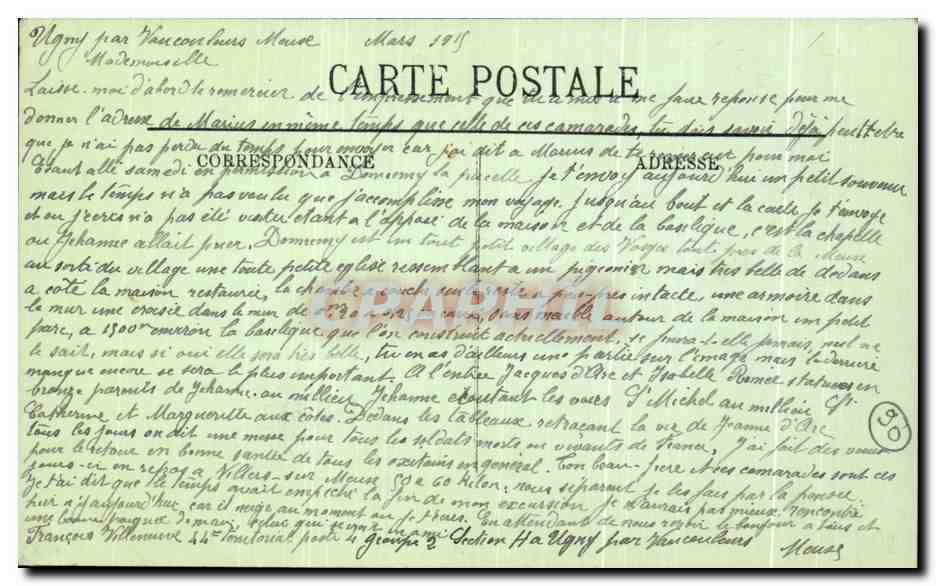 Ugny par Vaucouleurs Meuse Mars 1915
Mademoiselle
CARTE POSTALE
Laisse-moi d'abord te remercier de l'empressement que tu a mis a me faire reponse pour me
donner l'adresse de Marius en même temps que celle de ces camarades, tu dois savoir déjà peut etre
que je n'ai pas perdu du temps pour envoyer car j'ai dit a Marius de te remercier pour moi
CORRESPONDANCE ADRESSE
Etant allé samedi en permission a Domremy la pucelle je t'envoy aujourd'hui un petit souvenir
mais le temps n'a pas voulu que j'accomplisse mon voyage jusqu'au bout et la carte je t'envoye
et ou j'ecris n'a pas été etant a l'opposé de la maison et de la basilique, c'est la chapelle
ou Jehanne allait prier. Domremy est un tout petit village des Vosges tout pres de la Meuse
au sorti du village une toute petite eglise ressemblant a un pigeonier mais très belle de dedans
a coté la maison restaurée, la chambre a seule reste a peu près intacte, une armoire dans
le mur une croisée dans le mur de autour de la maison un petit
parc, a 1500m environ la basilique que l'on construit actuellement, se finira-t-elle jamais, nul ne
le sait, mais si oui elle sera très belle, tu en as d'ailleurs une partie sur l'image mais le derrière
manque encore se sera le plus important. A l'entrée Jacques d'Arc et Isabelle Romée statues en
bronze parents de Jehanne au millieu Jehanne écoutant les voies St Michel au millieu Ste
Catherine et Marguerite aux cotés. Dedans les tableaux retraçant la vie de Jeanne d'Arc
tous les jours on dit une messe pour tous les soldats morts ou vivants de France, j'ai fait des voeux
pour le retour en bonne santée de tous les occitains en general. Ton beau-frere et ces camarades sont ces
jours-ci en repos a Villers-sur Meuse 50 a 60 kilom. nous séparent je les fais par la pensée.
Je t'ai dit que le temps avait empeché la fin de mon excursion je n'aurais pas mieux rencontré
hier n'y aujourd'hui, car il neige au moment ou je t'ecris. En attendant de nous revoir le bonjour a tous et
une de main celui qui
François Villeneuve 44e territorial poste 4 groupe 2 Section H a Ugny par Vaucouleurs Meuse
90